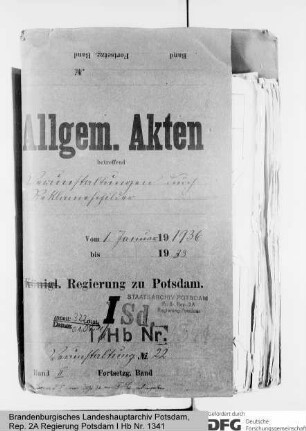 Band Fortsetz. Band
№
Allgem. Akten
betreffend
Verunstaltungen durch
Reklameschilder
Vom 1. Januar 19 1936
bis 19
Königl. Regierung zu Potsdam.
STAATSARCHIV POTSDAM
Pr. Br. Rep. 2A
Regierung Potsdam
I Hb Nr.
Verunstaltung № 22
Band II Fortsetz. Band.
Brandenburgisches Landeshauptarchiv Potsdam,
Rep. 2A Regierung Potsdam I Hb Nr. 1341
Gefördert durch
DFG Deutsche
Forschungsgemeinschaft